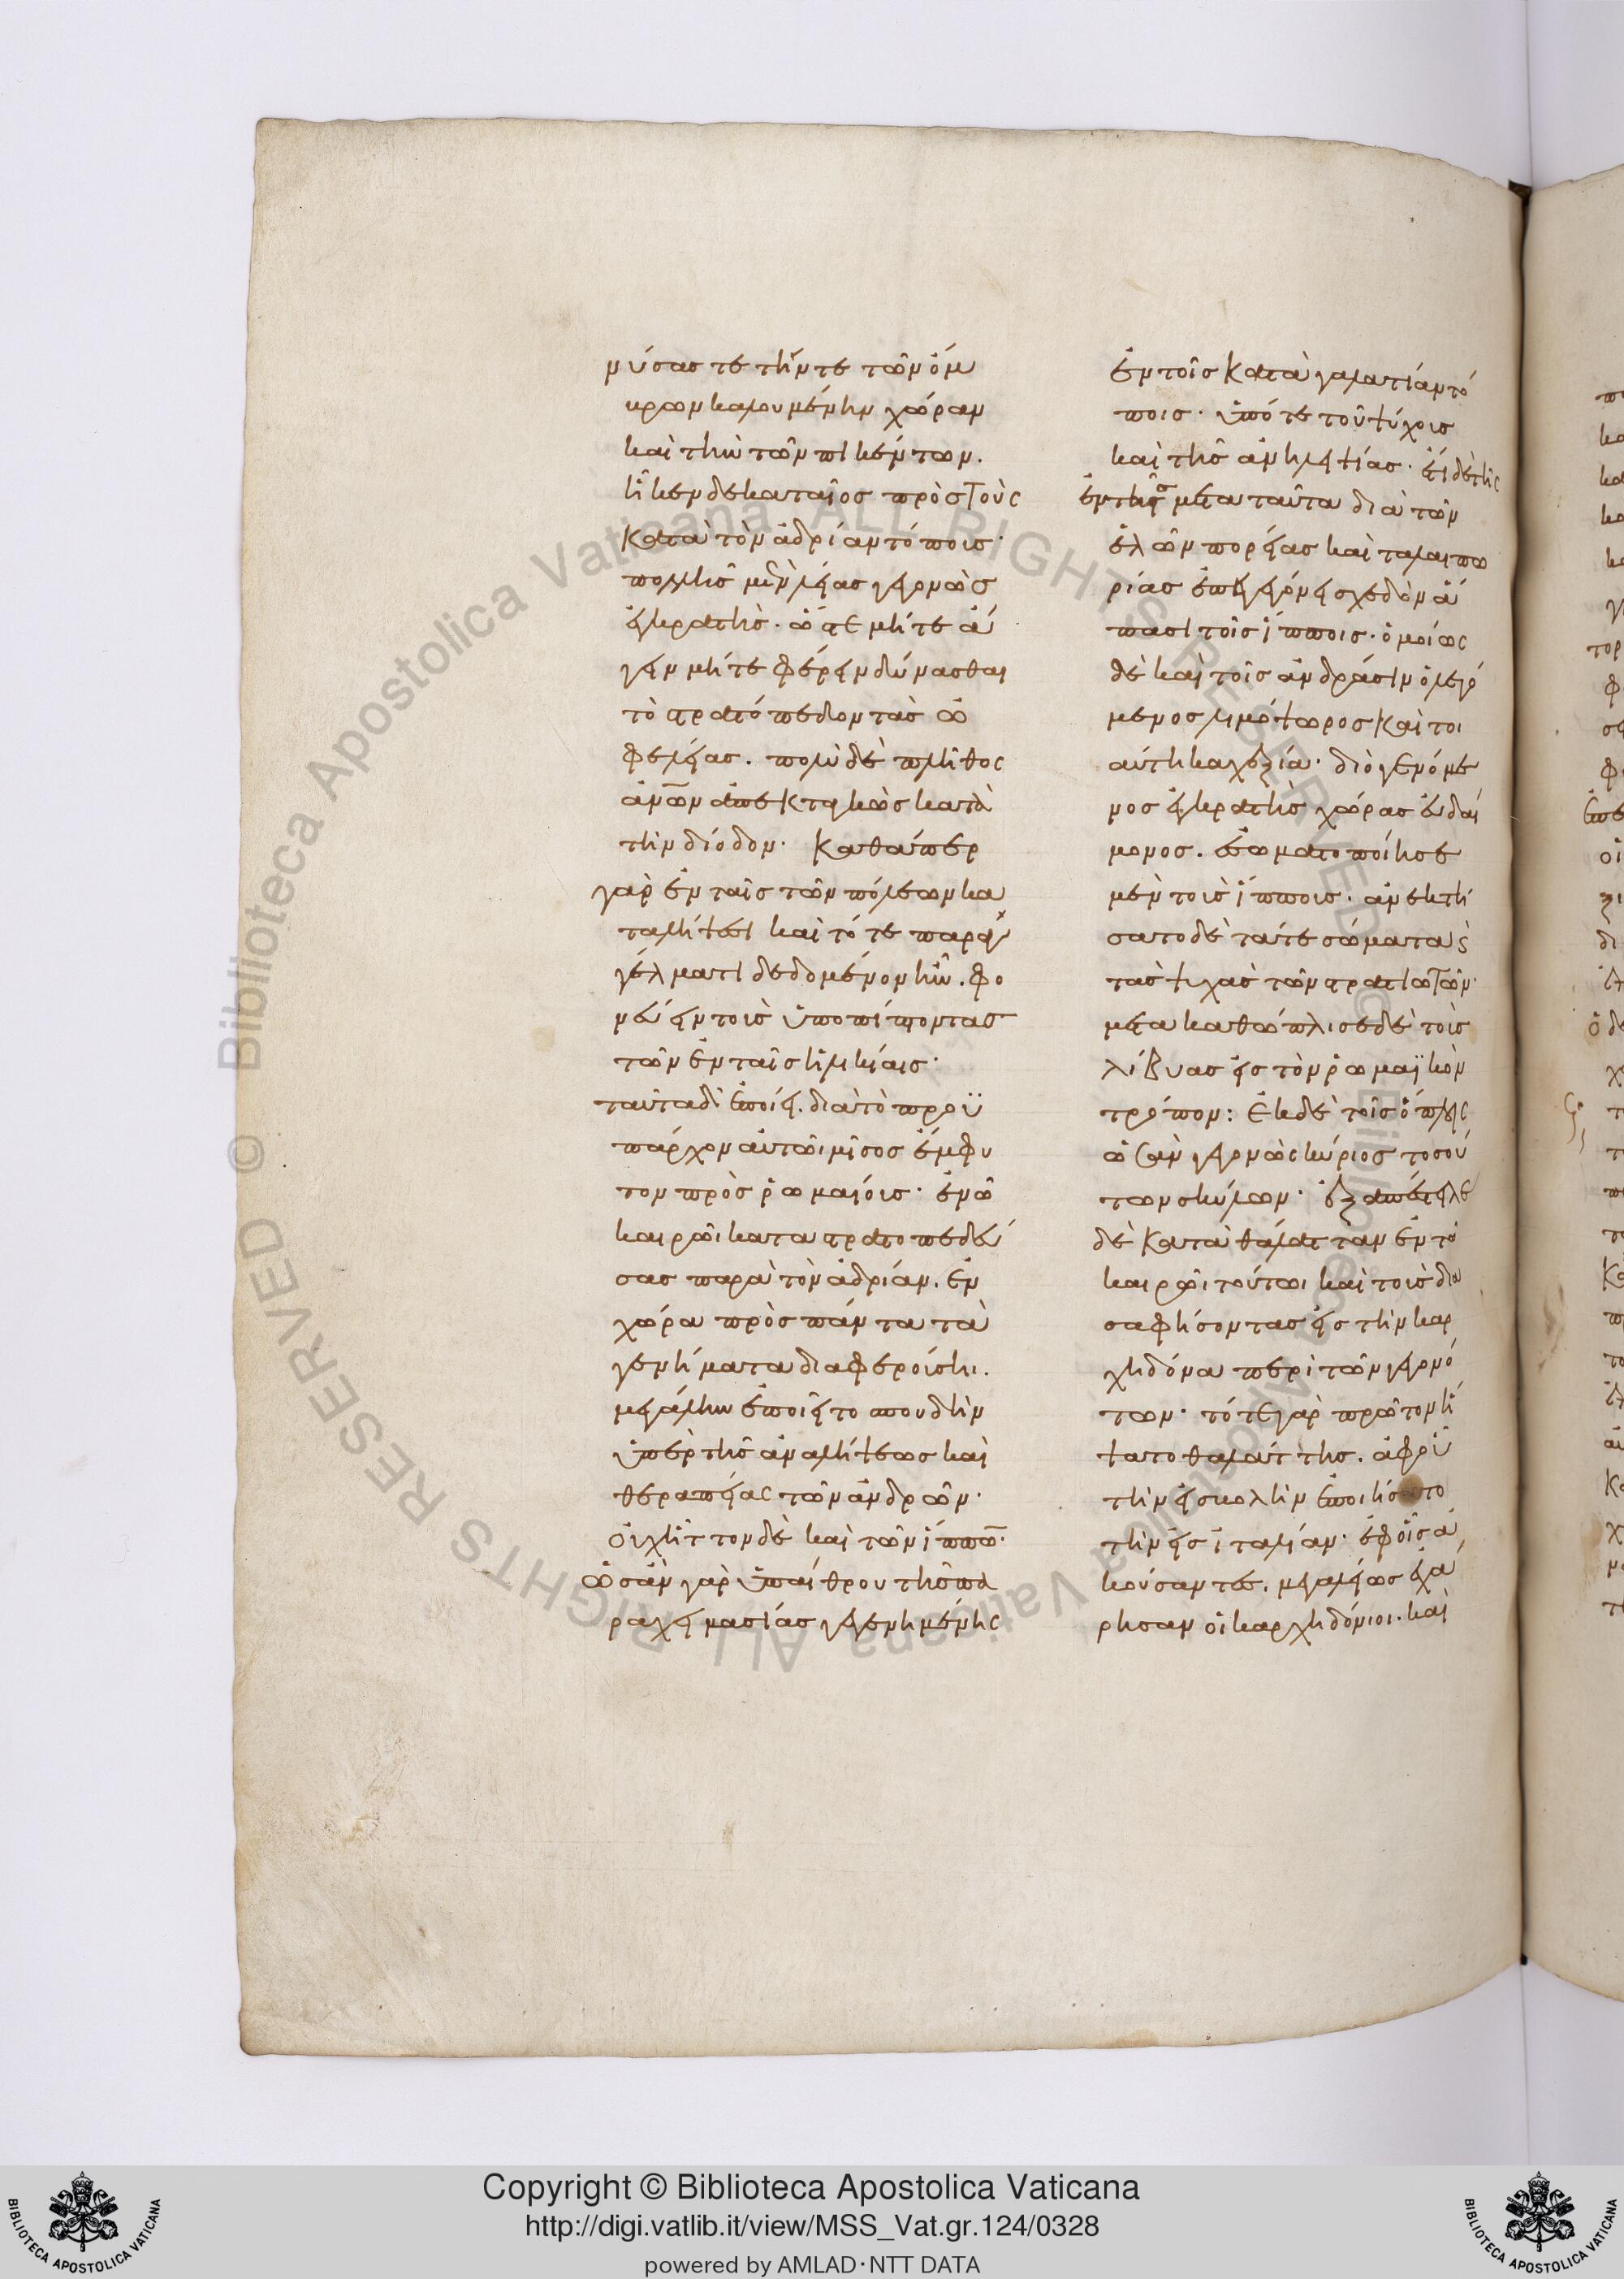 νύσας τε τήν τε τῶν ὄμ
κρων καλουμένην χώραν
καὶ τὴν τῶν πικέντων.
ἧκεν δεκαταῖος πρὸς τοὺς
κατὰ τὸν ἀδρίαν τόπους·
πολλῆς μὲν λείας γεγονὼς
ἐγκρατὴς. ὥστε μήτε ἄ
γειν μήτε φέρειν δύνασθαι
τὸ στρατόπεδον τὰς ὠ
φελείας. πολὺ δὲ πλῆθος
ἀνων ἀπεκταγκὼς κατὰ
τὴν δίοδον· καθάπερ
γὰρ ἐν ταῖς τῶν πόλεων κα
ταλήψεσι καὶ τότε παραγ
γέλματι δεδομένον ἦν. φο
νεύειν τοὺς ὑποπίπτοντας
τῶν ἐν ταῖς ἡλικίαις·
ταῦτα δ' ἐποίει. διὰ τὸ προϋ
πάρχον αὐτῶι μῖσος ἔμφυ
τον πρὸς ῥωμαίους· ἐν ὧ
καιρῶι καταστρατοπεδεύ
σας παρὰ τὸν ἀδρίαν. ἐν
χώρα πρὸς πάντα τὰ
γενήματα διαφερούσηι.
μεγάλην ἐποιεῖτο σπουδὴν
ὑπὲρ τῆς ἀναλήψεως καὶ
θεραπείας τῶν ἀνδρῶν·
οὐχ ἧττον δὲ καὶ τῶν ἵππω·
ὡς ἂν γὰρ ὑπαίθρου τῆς πα
ραχειμασίας γεγενημένης
ἐν τοῖς κατὰ γαλατίαν τό
ποις· ὑπό τε τοῦ ψύχους
καὶ τῆς ἀνηλειψίας· ἔτι δὲ τῆς
ἐν τῆς μετα ταῦτα διὰ τῶν
ἑλῶν πορείας καὶ ταλαιπω
ρίας ἐπεγεγόνει σχεδὸν ἅ
πασι τοῖς ἵπποις· ὁμοίως
δὲ καὶ τοῖς ἀνδράσιν ὁ λεγό
μενος λιμόψωρος καὶ τοι
αύτη καχεξία· διὸ γενόμε
νος ἐγκρατὴς χώρας εὐδαί
μονος. ἐσωματοποίησε
μὲν τοὺς ἵππους· ἀνεκτή
σατο δὲ τά τε σώματα ϗ
τὰς ψυχὰς τῶν στρατιωτῶν·
μετακαθώπλισε δὲ τοὺς
λίβυας εἰς τὸν ῥωμαϊκὸν
τρόπον: ἐκ δὲ τοῖς ὅπλοις
ὡς ἂν γεγονὼς κύριος τοσού
των σκύλων· ἐξαπέστειλε
δὲ κατὰ θάλατταν ἐν τῶ
καιρῶι τούτωι καὶ τοὺς δια
σαφήσοντας εἰς τὴν καρ
χηδόνα περὶ τῶν γεγονό
των· τότε γὰρ πρῶτον ἥ
ψατο θαλάττης. ἀφ' οὗ
τὴν εἰσβολὴν ἐποιήσατο
τὴν εἰς ἰταλίαν· ἐφ' οἷς ἀ
κούσαντες. μεγαλείως ἐχά
ρησαν οἱ καρχηδόνιοι· καὶ
Copyright © Biblioteca Apostolica Vaticana
http://digi.vatlib.it/view/MSS_Vat.gr.124/0328
powered by AMLAD·NTT DATA
BIBLIOTECA APOSTOLICA VATICANA
BIBLIOTECA APOSTOLICA VATICANA
© Biblioteca Apostolica Vaticana ALL RIGHTS RESERVED
© Biblioteca Apostolica Vaticana ALL RIGHTS RESERVED